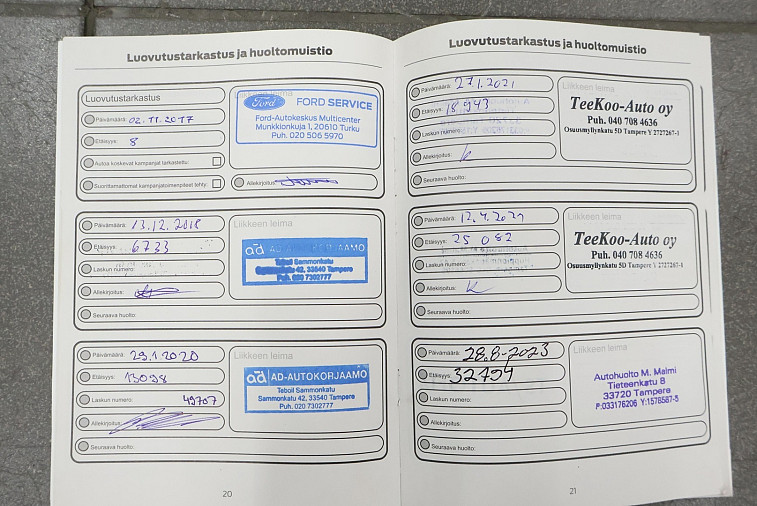 Luovutustarkastus ja huoltomuistio
Luovutustarkastus
Päivämäärä: 02.11.2017
Etäisyys: 8
Autoa koskevat kampanjat tarkastettu:
Suorittamattomat kampanjatoimenpiteet tehty:
Liikkeen leima
Ford FORD SERVICE
Ford-Autokeskus Multicenter
Munkkionkuja 1, 20610 Turku
Puh. 020 506 5970
Allekirjoitus:
Päivämäärä: 13.12.2018
Etäisyys: 6733
Laskun numero:
Allekirjoitus:
Seuraava huolto:
Liikkeen leima
ad AD-AUTOKORJAAMO
Teboil Sammonkatu
Sammonkatu 42, 33540 Tampere
Puh. 020 7302777
Päivämäärä: 29.1.2020
Etäisyys: 13098
Laskun numero: 49707
Allekirjoitus:
Seuraava huolto:
Liikkeen leima
ad AD-AUTOKORJAAMO
Teboil Sammonkatu
Sammonkatu 42, 33540 Tampere
Puh. 020 7302777
20
Luovutustarkastus ja huoltomuistio
Päivämäärä: 27.1.2021
Etäisyys: 18943
Laskun numero:
Allekirjoitus:
Seuraava huolto:
Liikkeen leima
TeeKoo-Auto oy
Puh. 040 708 4636
Osuusmyllynkatu 5D Tampere Y 2727267-1
Päivämäärä:
Etäisyys: 25 082
Laskun numero:
Allekirjoitus:
Seuraava huolto:
Liikkeen leima
TeeKoo-Auto oy
Puh. 040 708 4636
Osuusmyllynkatu 5D Tampere Y 2727267-1
Päivämäärä: 28.8-2023
Etäisyys: 32794
Laskun numero:
Allekirjoitus:
Seuraava huolto:
Liikkeen leima
Autohuolto M. Malmi
Tieteenkatu 8
33720 Tampere
P:033176206 Y:1578587-5
21